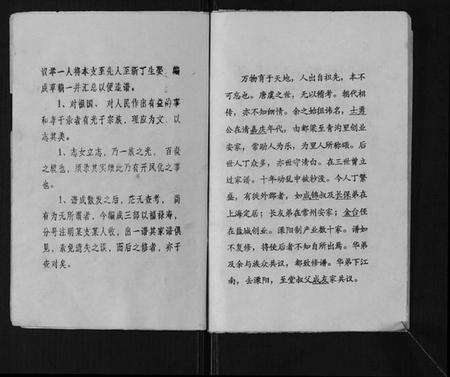 议举一人将本支至先人至新丁生娶 编
成草稿一并汇总以便造谱。
1、对祖国、 对人民作出有益的事
和孝于亲者有光于宗族，理应为文，以
志其美。
1、志女立志，乃一族之光， 百发
之模也，须录其实绩此乃有开风化之事
也。
1、谱成散发之后，茫无查考， 尚
有为无所需者，今编成三部以福禄寿，
分号注明某支某人收，出一谱其家谱俱
见，亲免遗失之误，而后之修者，亦于
查对矣。
万物育于天地，人出自祖先，本不
可忘也。唐虞之世，无以稽考。朝代相
传，亦不知细情。余之始祖讳名，士勇
公在清嘉庆年代，由邮梁至青沟里创业
安家，常助人为乐，为里人所称颂。后
世人丁众多，亦世守清白。在三世曾立
过家谱。十年动乱中被抄没。今人丁繁
盛，有徙外邮者，如成锦叔及长保弟在
上海定居；长友弟在常州安家；金台侄
在盐城创业。溧阳制产业数十家。谱如
不复修，将使后者不知自所出焉。华弟
及余与族众共议，都致修谱。华弟下江
南，去溧阳，至堂叔父成友家共议。